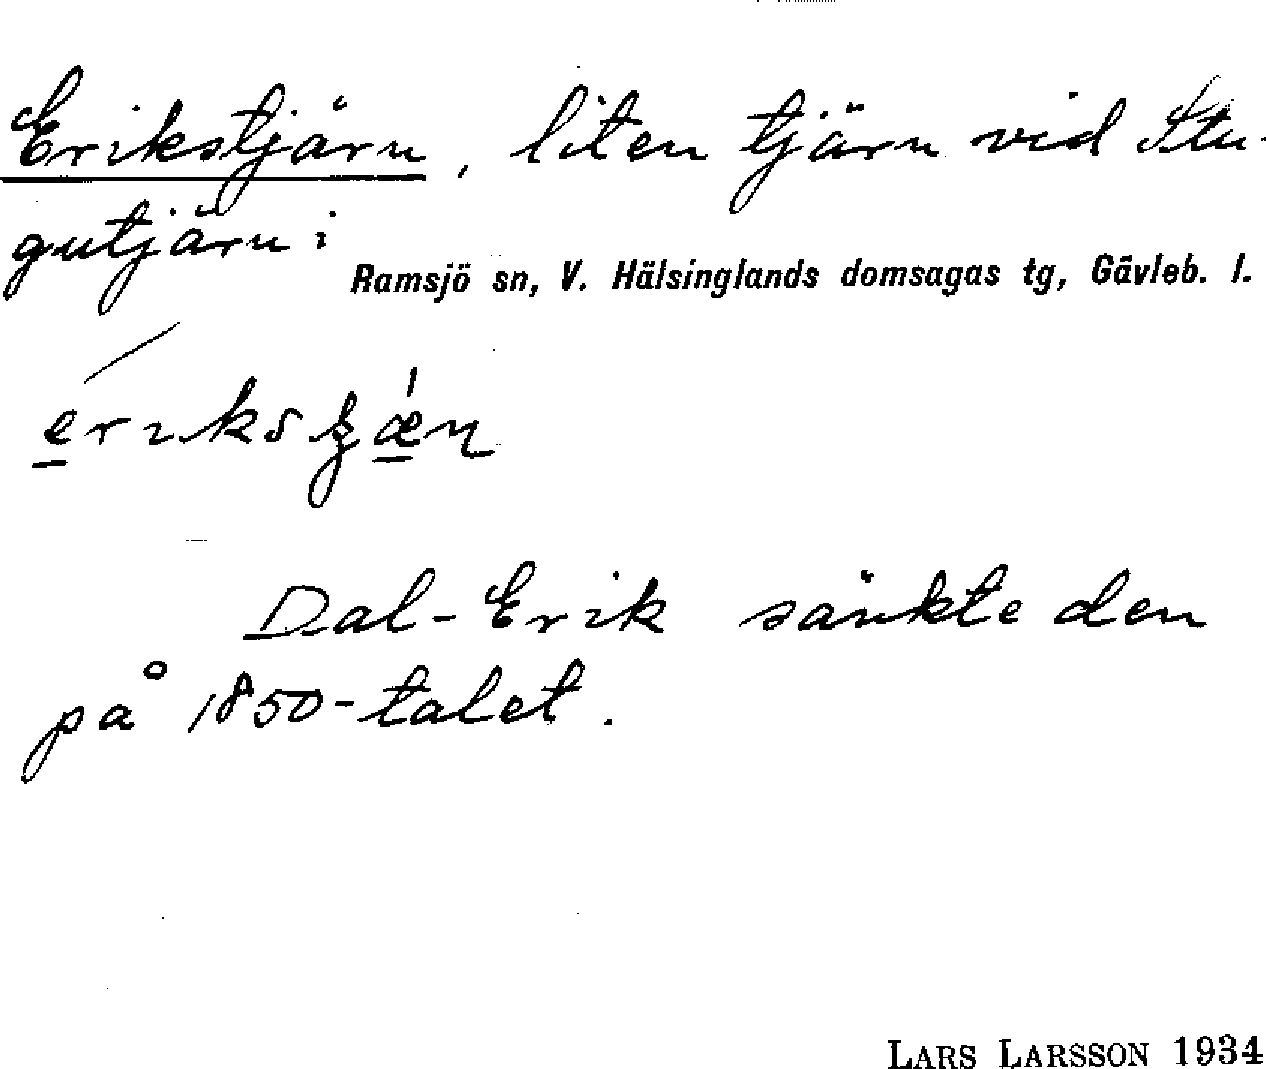 Erikstjärn, liten tjärn vid Stu-
gutjärn i
Ramsjö sn, V. Hälsinglands domsagas tg, Gävleb. l.
Dal-Erik sänkte den
på 1850-talet.
LARS LARSSON 1934